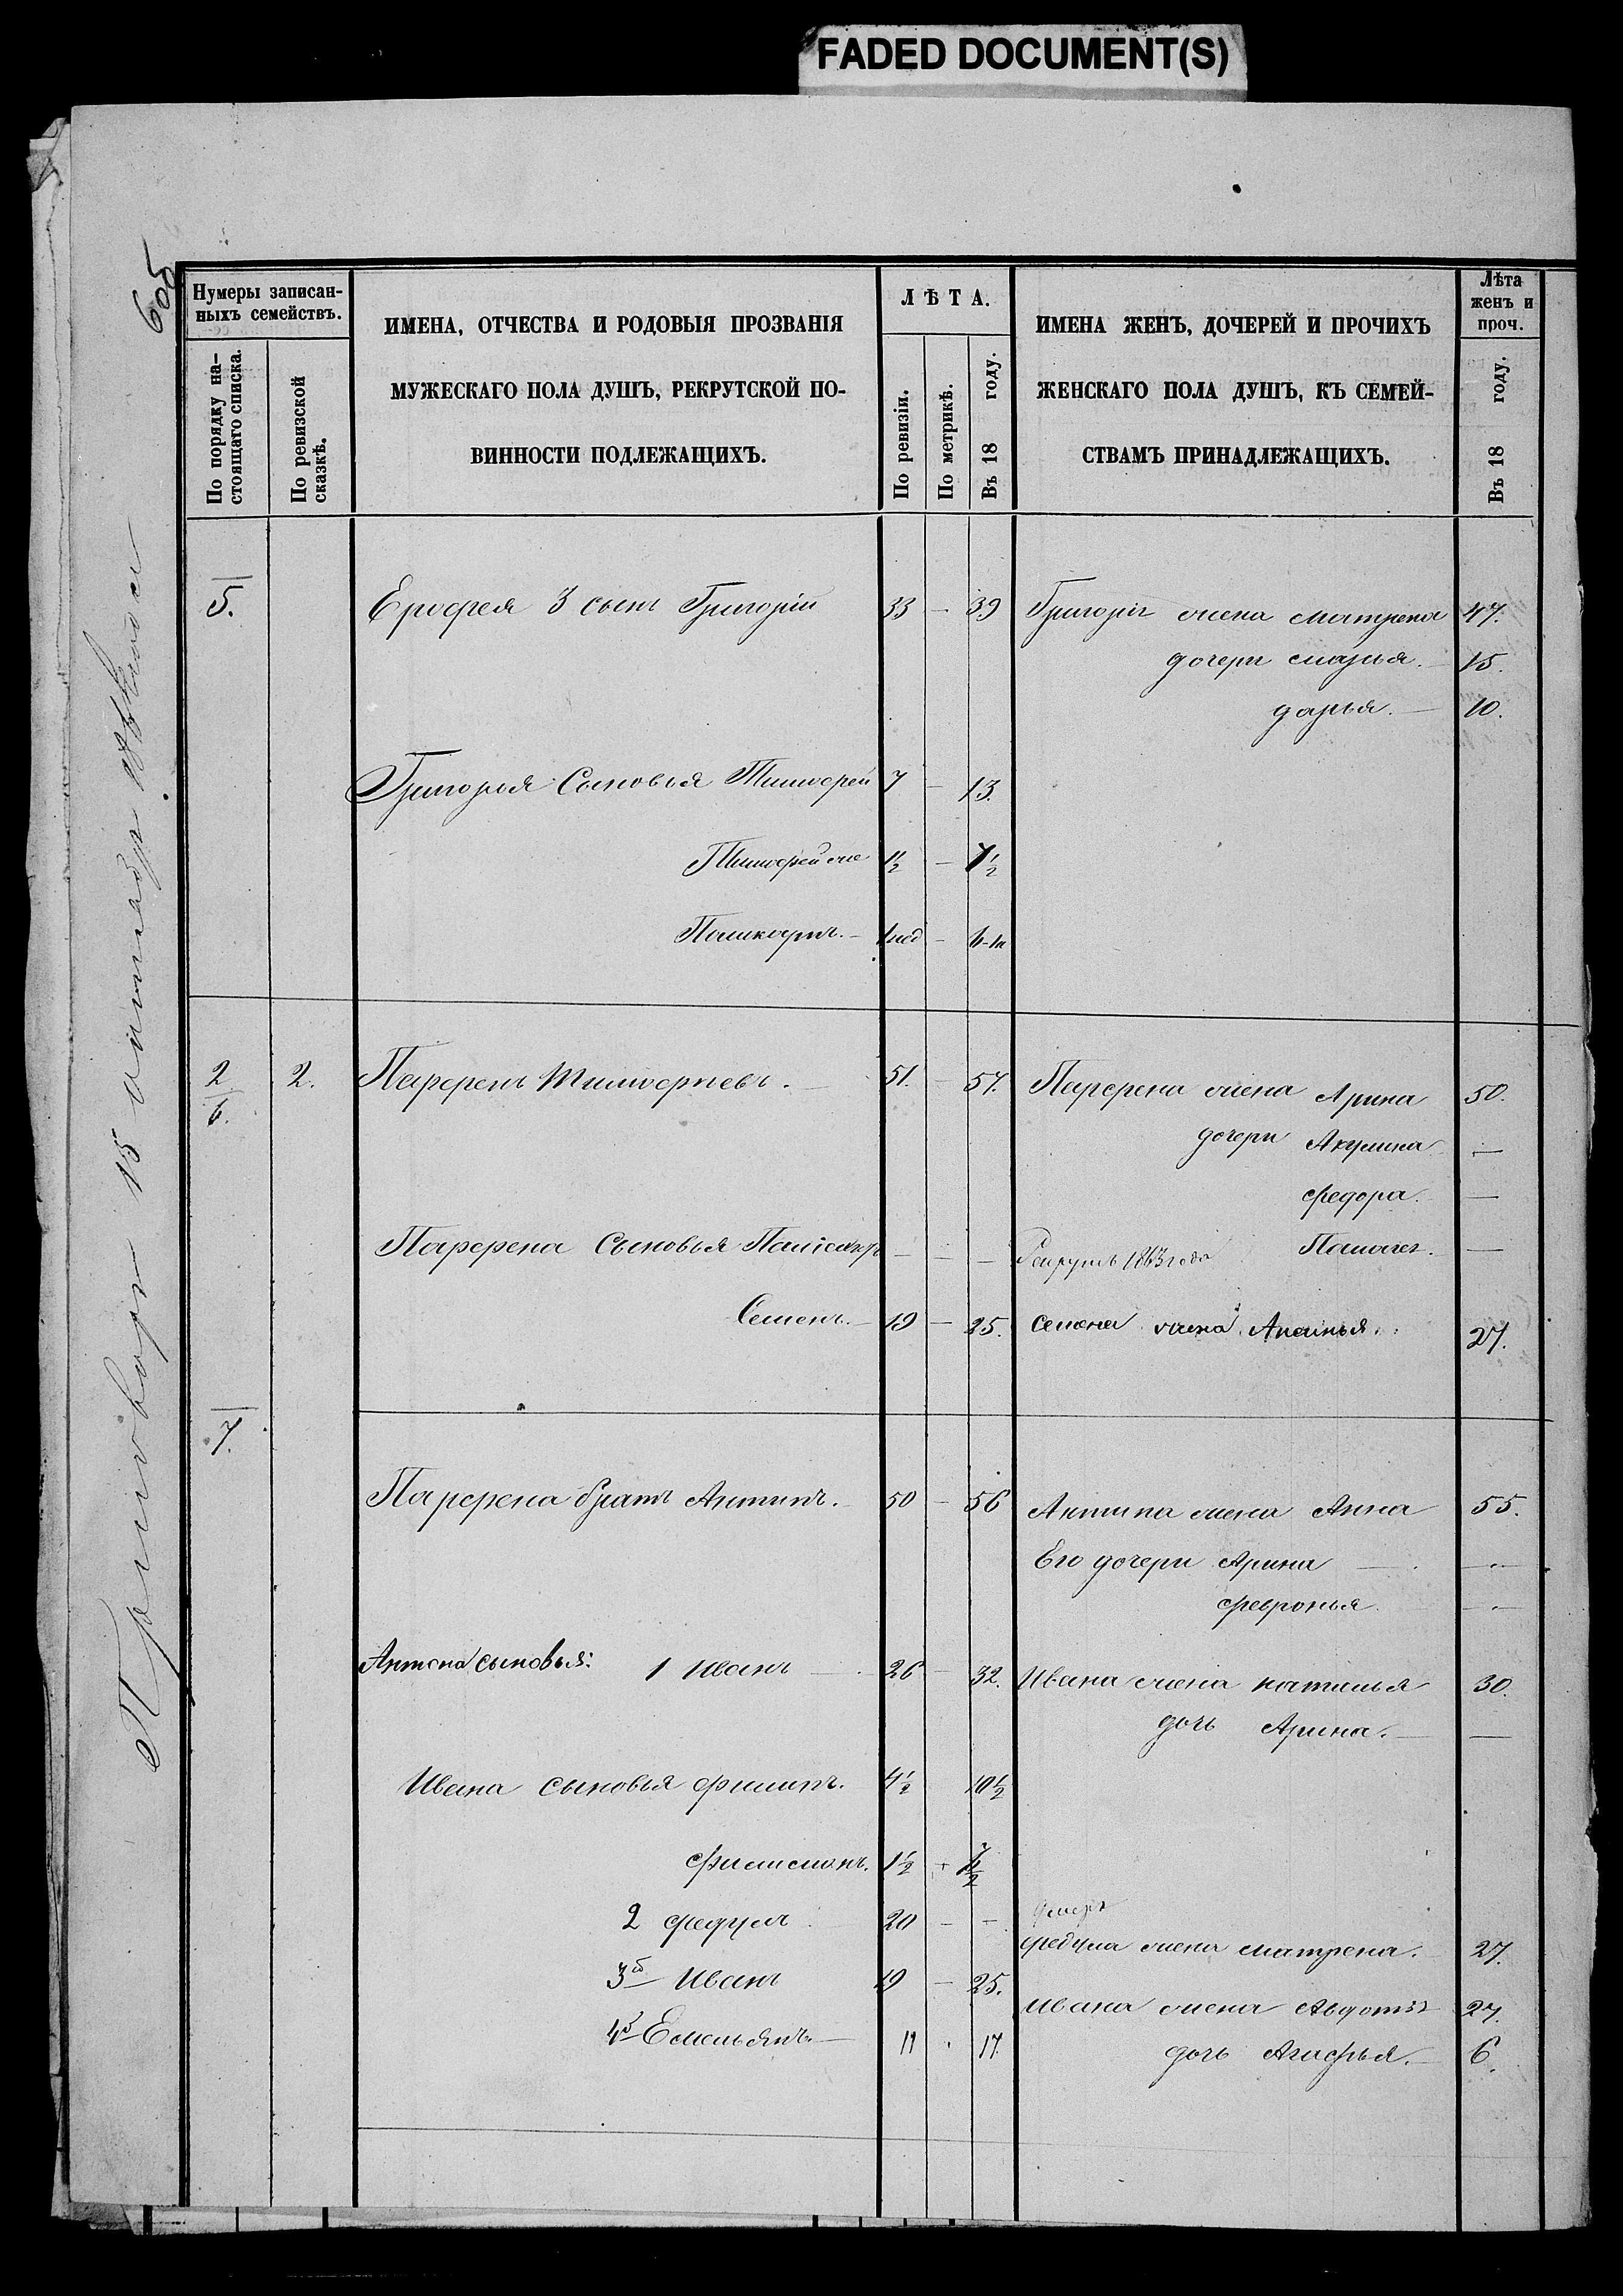 FADED DOCUMENT(S)
605
Нумеры записан-
ныхъ семействъ.
По порядку на-
стоящаго списка.
По ревизской
сказкѣ.
ИМЕНА, ОТЧЕСТВА И РОДОВЫЯ ПРОЗВАНІЯ
МУЖЕСКАГО ПОЛА ДУШЪ, РЕКРУТСКОЙ ПО-
ВИННОСТИ ПОДЛЕЖАЩИХЪ.
ЛѢТА.
По ревизіи.
По метрикѣ.
Въ 18 году.
ИМЕНА ЖЕНЪ, ДОЧЕРЕЙ И ПРОЧИХЪ
ЖЕНСКАГО ПОЛА ДУШЪ, КЪ СЕМЕЙ-
СТВАМЪ ПРИНАДЛЕЖАЩИХЪ.
Лѣта
женъ и
проч.
Въ 18 году.
5. Ерофея 3 сынъ Григорій 33 — 39 Григорія жена Матрена 47.
дочери Марья. — 15.
Дарья. — 10.
Григорья Сыновья Тимофей 7 — 13.
Тимофей же 1½ — 7½
1 нед —
2/6. 2. Парфенъ Тимофеевъ. — 51. — 57. Парфена жена Арина 50.
дочери Акулина —
Федора. —
Парфена Сыновья — — — Рекрутъ 1863 года —
Семенъ. — 19 — 25. Семена жена 27.
7.
Парфена братъ Антипъ. 50 — 56 Антипа жена Анна 55.
Его дочери Арина — —
Февронья. —
сыновья: 1 Иванъ — 26 — 32. Ивана жена Наталья 30.
дочь Арина. — —
Ивана сыновья Филипъ. 4½ 10½
Филимонъ. 1½ 7½
2 Федулъ 20 — —
Федула жена Матрена. 27.
3й Иванъ 19 — 25.
Ивана жена Авдотья 27.
4й Емельянъ. — 11 17. дочь Агафья. — 6.
15